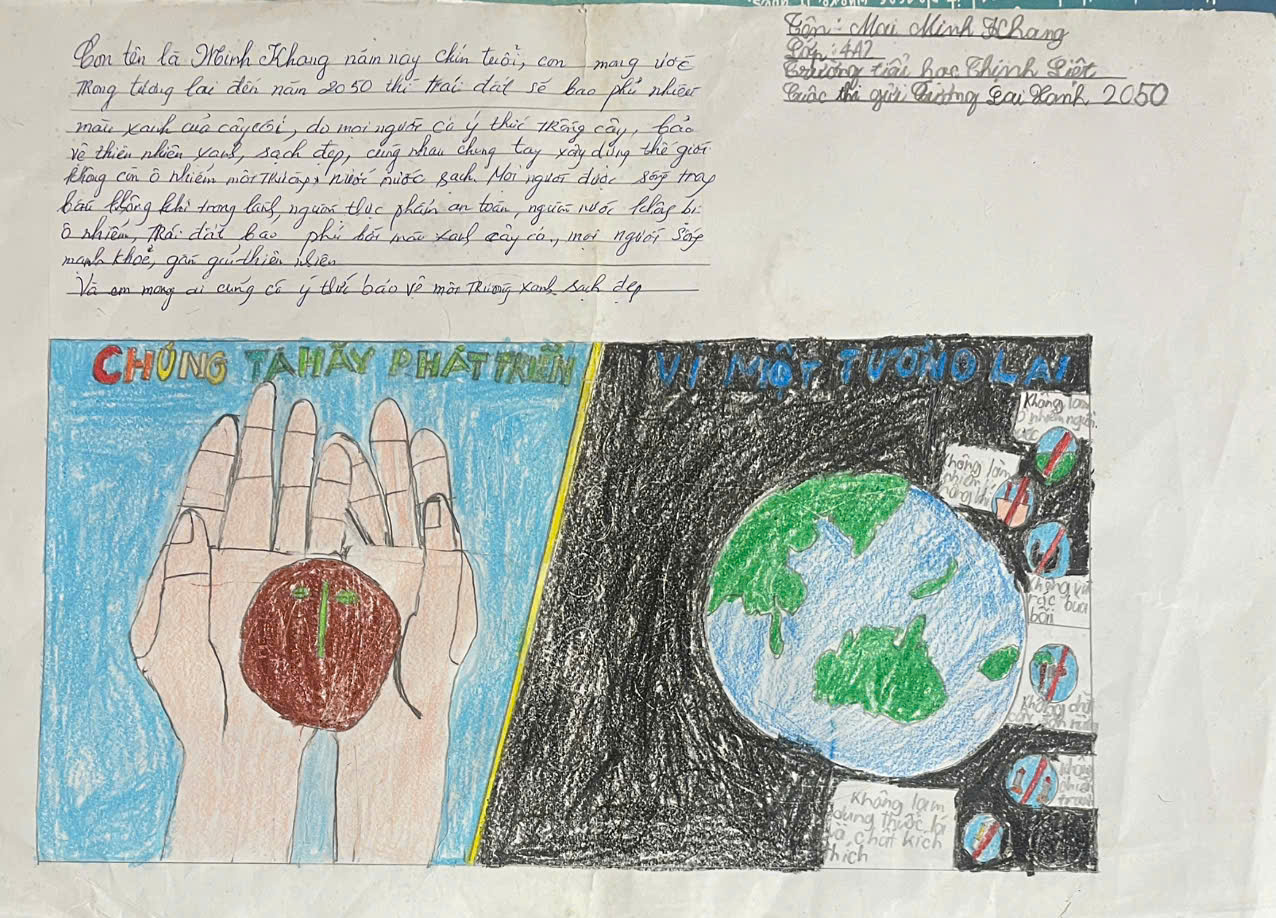 Tên: Mai Minh Khang
Lớp: 4A2
Trường tiểu học Thịnh Liệt
Cuộc thi gửi Tương Lai Xanh 2050
Con tên là Minh Khang năm nay chín tuổi, con mong ước
Trong tương lai đến năm 2050 thì trái đất sẽ bao phủ nhiều
màu xanh của cây cối, do mọi người có ý thức trồng cây, bảo
vệ thiên nhiên xanh, sạch đẹp, cùng nhau chung tay xây dựng thế giới
không còn ô nhiễm môi trường, nước sạch. Mọi người được sống trong
bầu không khí trong lành, nguồn thực phẩm an toàn, nguồn nước không bị
ô nhiễm, trái đất bao phủ bởi màu xanh cây cỏ, mọi người sống
mạnh khoẻ, gần gũi thiên nhiên
Và em mong ai cũng có ý thức bảo vệ môi trường xanh sạch đẹp
CHÚNG TA HÃY PHÁT TRIỂN
VÌ MỘT TƯƠNG LAI
Không làm
ô nhiễm nguồn
Không làm
nhiễm
không khí
Không vứt
rác bừa
bãi
Không chặt
Không
chiến
tranh
Không lạm
dụng thuốc lá
và chất kích
thích